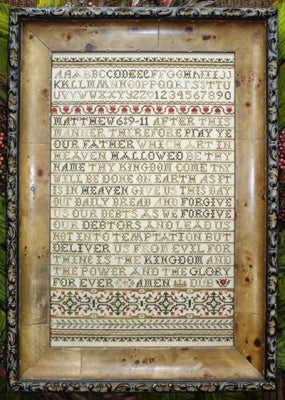 AAABBCCDDEEFFFGGHHIIJJ
KKLLMMNNOOPPQQRRSSTTU
UVVWWXXYYZZ1234567890
MATTHEW 6:9-11 AFTER THIS
MANNER THEREFORE PRAY YE
OUR FATHER WHICH ART IN
HEAVEN HALLOWED BE THY
NAME THY KINGDOM COME THY
WILL BE DONE ON EARTH AS IT
IS IN HEAVEN GIVE US THIS DAY
OUR DAILY BREAD AND FORGIVE
US OUR DEBTS AS WE FORGIVE
OUR DEBTORS AND LEAD US
NOT INTO TEMPTATION BUT
DELIVER US FROM EVIL FOR
THINE IS THE KINGDOM AND
THE POWER AND THE GLORY
FOR EVER AMEN